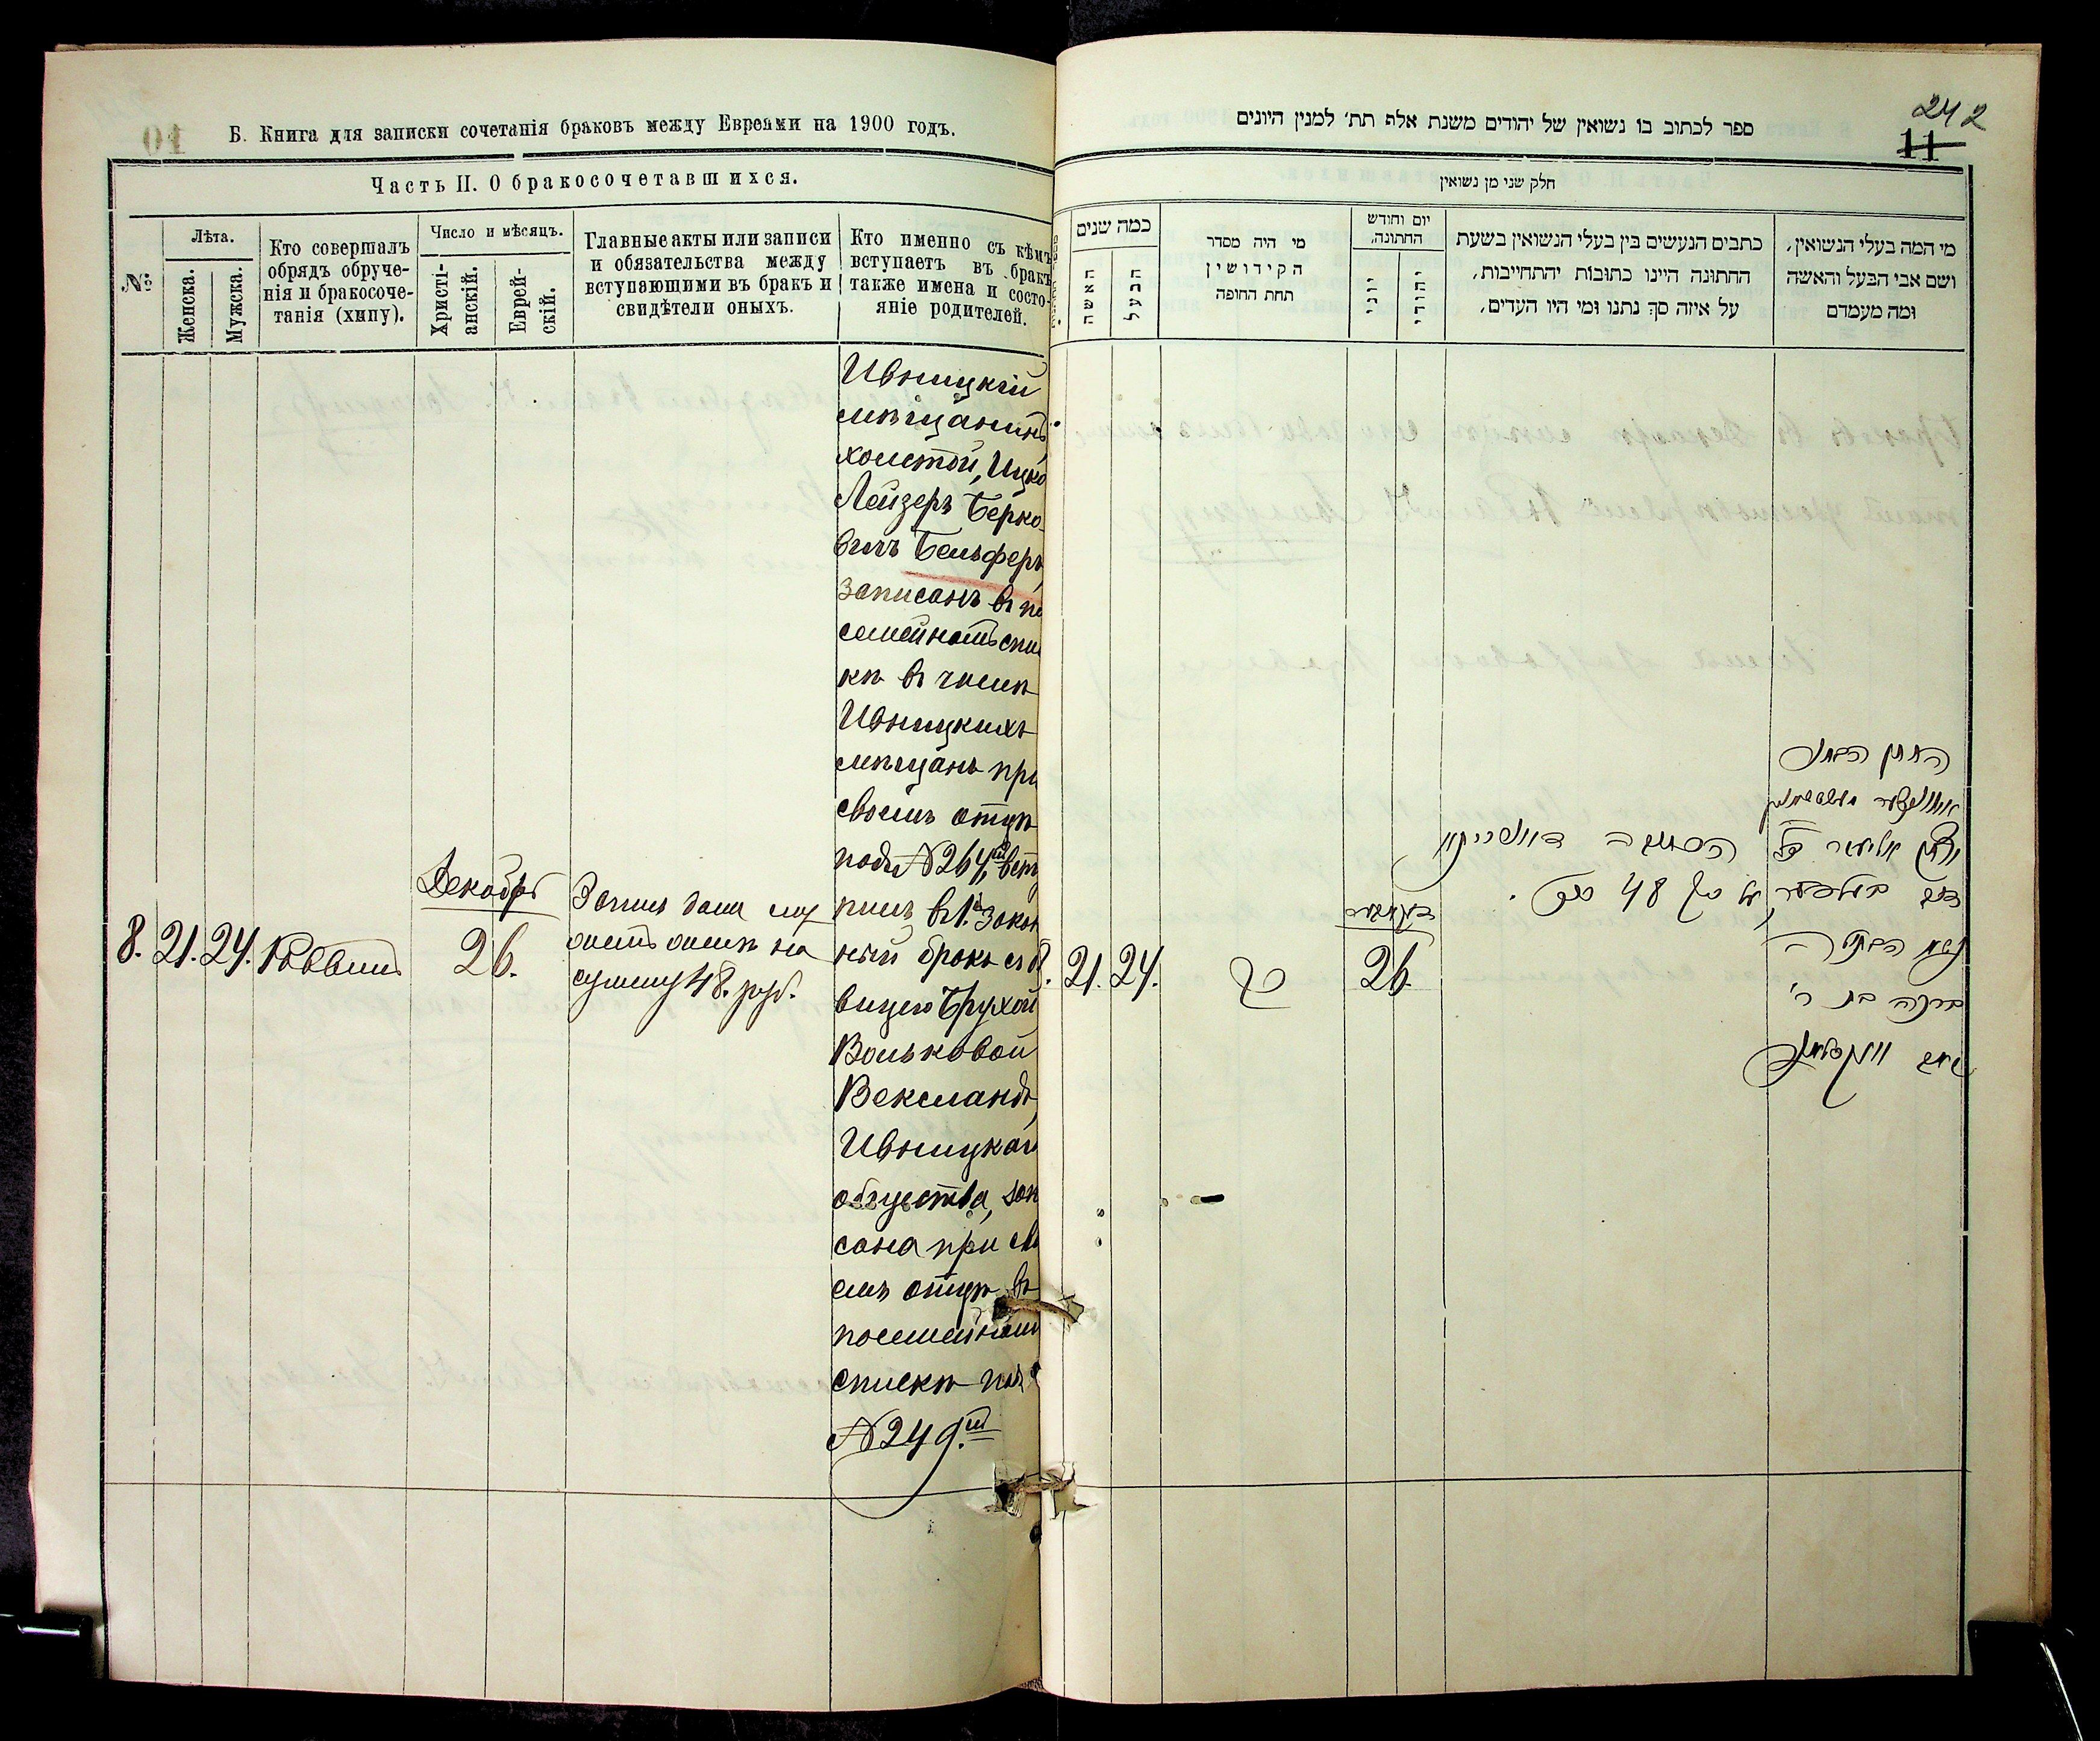 Б. Книга для записки сочетанія браковъ между Евреями на 1900 годъ.
Часть II. О бракосочетавшихся.
№
Лѣта.
Женска.
Мужска.
Кто совершалъ
обрядъ обруче-
нія и бракосоче-
танія (хипу).
Число и мѣсяцъ.
Христі-
анскій.
Еврей-
скій.
Главные акты или записи
и обязательства между
вступающими въ бракъ и
свидѣтели оныхъ.
Кто именно съ кѣмъ
вступаетъ въ бракъ
также имена и состо-
яніе родителей.
8. 21. 24. Раввинъ
Декабрь
26.
Запись дана
сумму 48. руб.
Ивницкій
мѣщанинъ,
холостой, Ицко
Лейзеръ Берко-
вичъ Бельферъ,
записанъ въ по
семейномъ спи
кѣ въ числѣ
Ивницкихъ
мѣщанъ при
своемъ отцѣ
подъ №264, вст
пилъ въ 1й закон
ный бракъ съ д
вицею Брухой
Вольковой
Вексланд
Ивницкаго
общества, зап
сана при сво
емъ отцѣ въ
посемейном
спискѣ под
№249
242
11
ספר לכתוב בו נשואין של יהודים משנת אלף תת׳ למנין היונים
חלק שני מן נשואין
כמה שנים
האשה
הבעל
מי היה מסדר
הקידושין
תחת החופה
יום וחודש
החתונה,
יוני
יהודי
כתבים הנעשים בין בעלי הנשואין בשעת
החתונה היינו כתובות יהתחייבות,
על איזה סך נתנו ומי היו העדים,
מי המה בעלי הנשואין,
ושם אבי הבעל והאשה
ומה מעמדם
8. 21. 24.
רב
דעקאבער
26.
על סך 48
החתן הבחור
יצחק אליעזר
ברכה בת ר׳